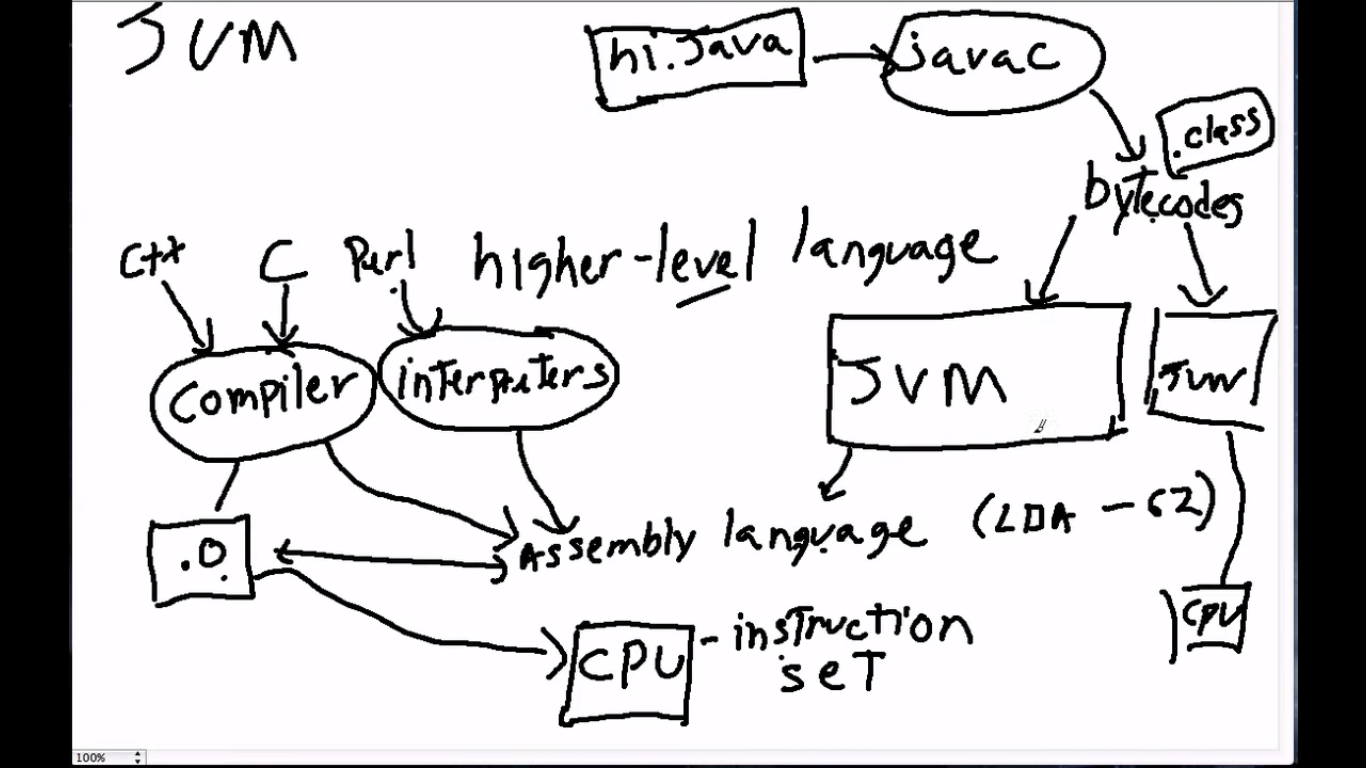 JVM
hi.java
javac
.class
bytecodes
C++
C
Perl
higher-level language
compiler
interpreters
JVM
JVM
Assembly language (LDA - 62)
.o
CPU
- instruction
set
CPU
100%